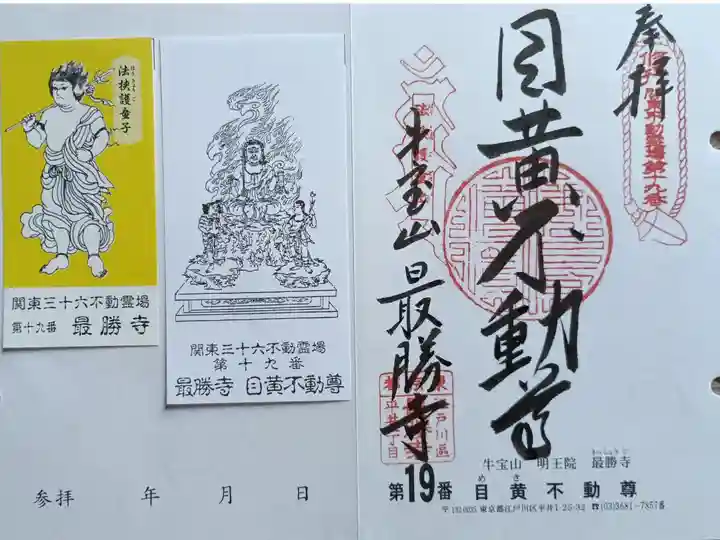 法挾護童子
ほうきょうごどうじ
関東三十六不動霊場
第十九番 最勝寺
関東三十六不動霊場
第十九番
最勝寺 目黄不動尊
参拝 年 月 日
奉拝
関東不動霊場第十九番
目黄不動尊
牛宝山 最勝寺
牛宝山 明王院 最勝寺
さいしょうじ
め き
第19番 目黄不動尊
東京都江戸川区平井1-25-32 ☎(03)3681-7857番